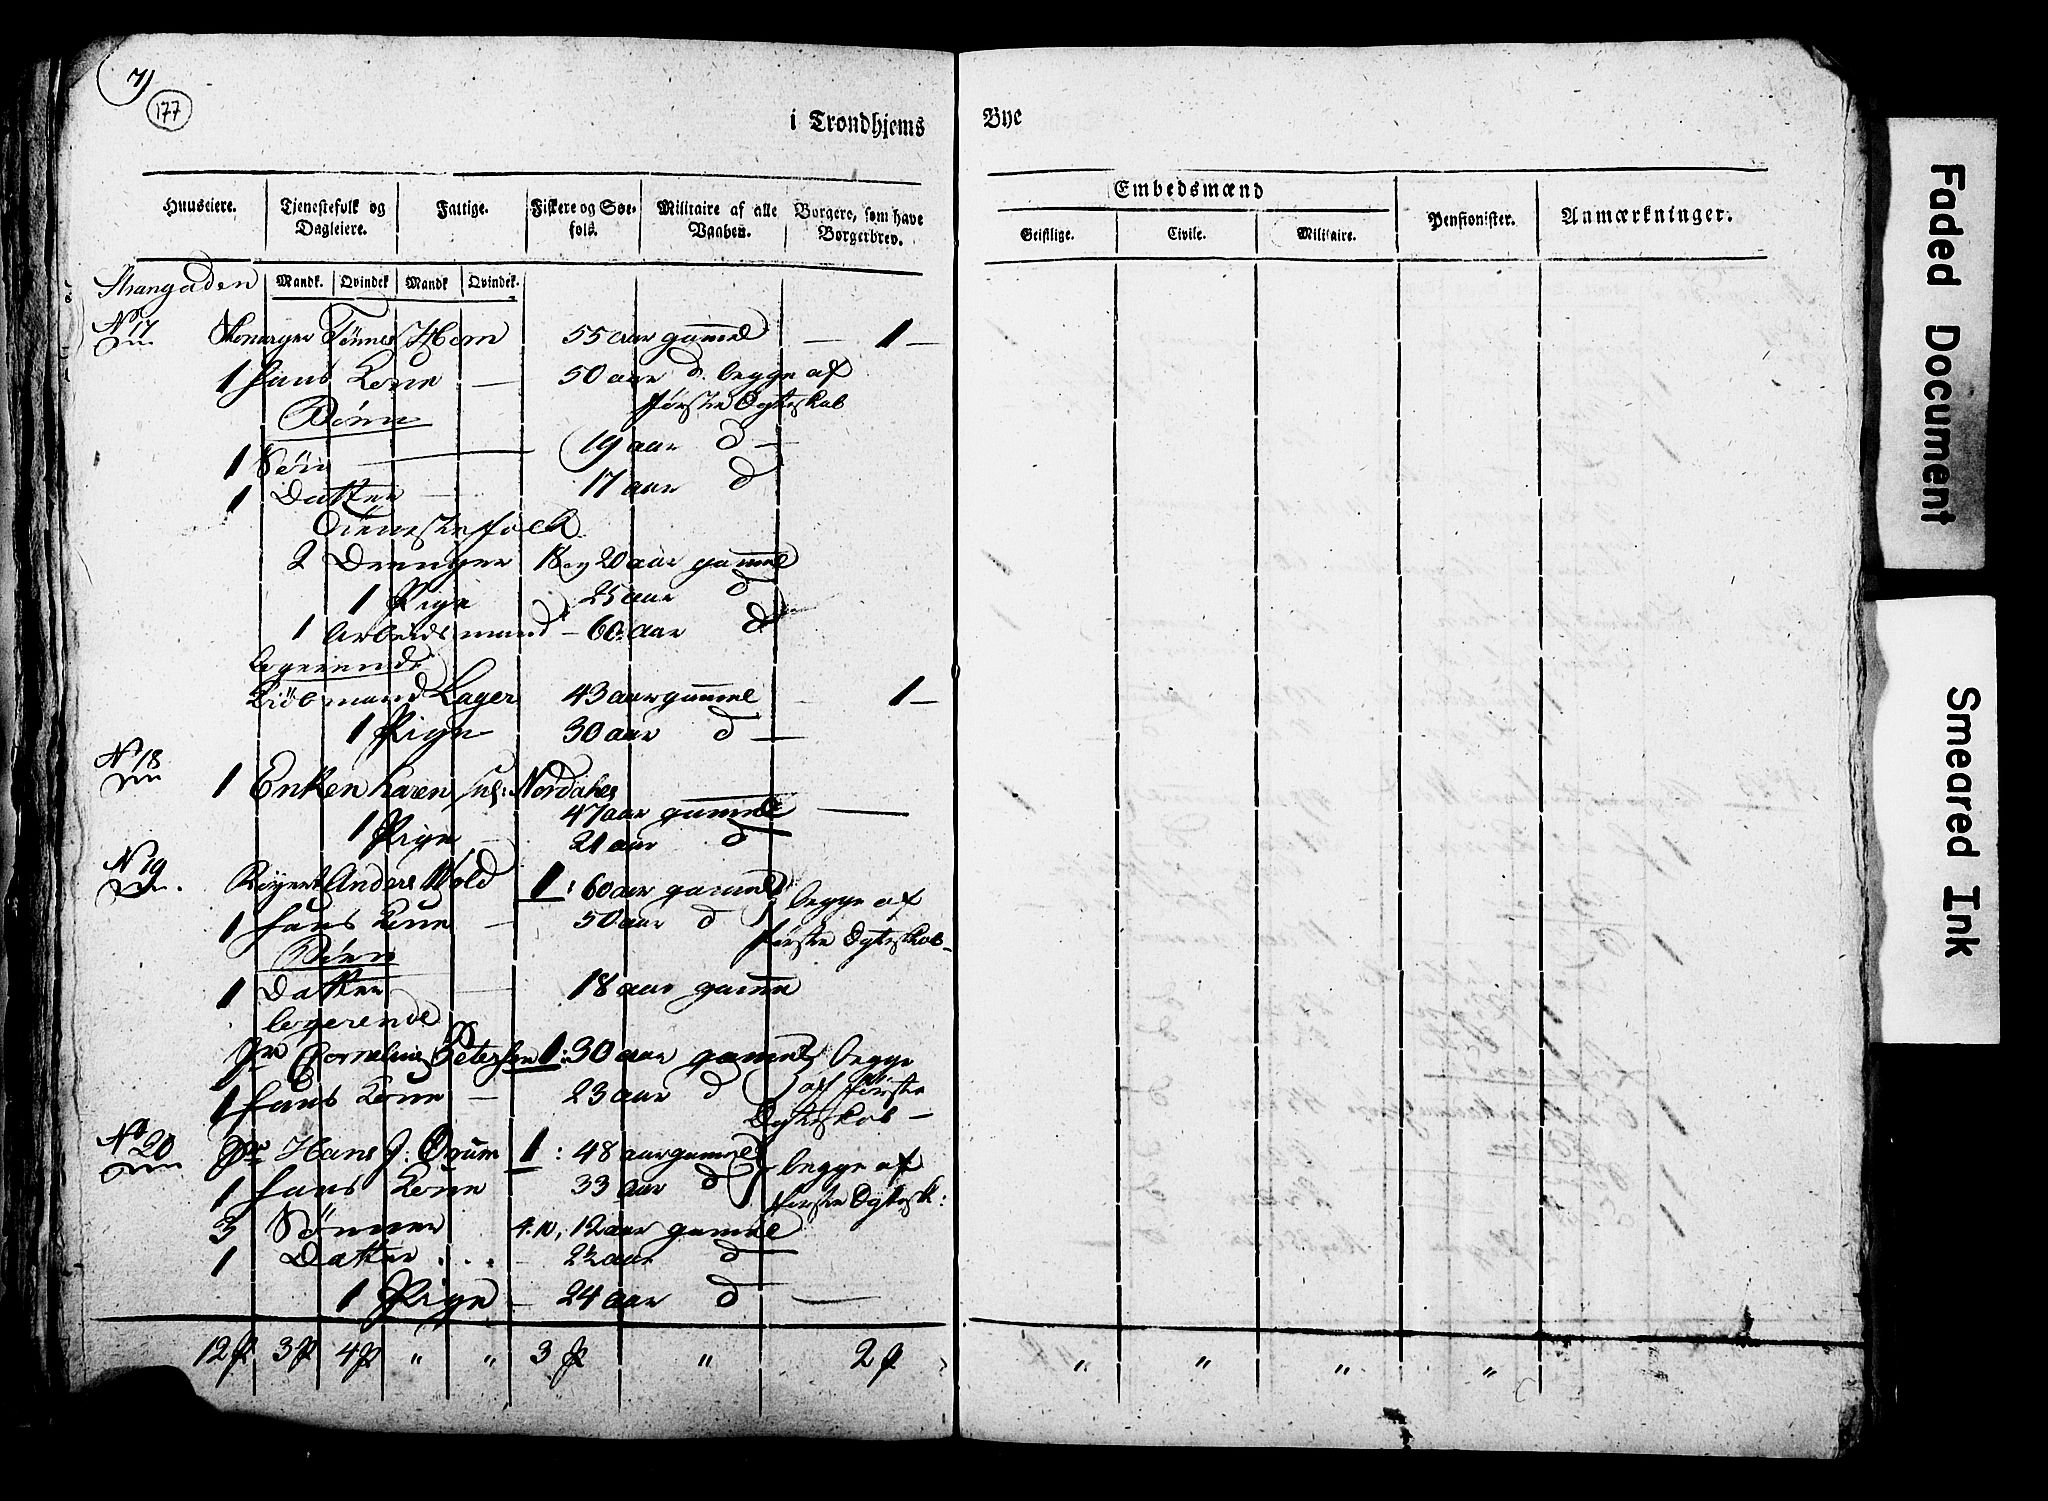 7)
177
i Trondhjems
Bye
Huuseiere.
Tjenestefolk og Dagleiere.
Fattige.
Fiskere og Søe-folk.
Militaire af alle Vaaben.
Borgere, som have Borgerbrev.
Embedsmænd
Geistlige.
Civile.
Militaire.
Pensionister.
Anmærkninger.
Strangaden
Mandk. Qvindek. Mandk. Qvindek.
No 17 Skomager Tønnes Horn 55 aar gammel — 1 —
1 hans Kone — 50 aar d. begge af
første Egteskab
Børn
1 Søn — 19 aar d —
1 Datter — 17 aar d
Tienestefolk
2 Drenger 18 og 20 aar gammel
1 Pige 25 aar d
1 Arbeidsmand — 60 aar d
Logerende
Kiøbmand Lager 43 aar gammel — 1 —
1 Pige 30 aar d —
No 18
1 Enken Karen sal: Nordahes
47 aar gammel —
1 Pige — 21 aar d
No 19
Anders Wold 1: 60 aar gammel
1 hans Kone — 50 aar d begge af
første Egteskab —
Børn
1 Datter 18 aar gamel
logerende
Cornelius Petersen 1: 30 aar gammel begge
1 hans Kone — 23 aar d af første
Egteskab —
No 20 Hans J: Ørum 1: 48 aar gammel
1 hans Kone 33 aar d begge af
første Egtesk:
3 Sønner 4. 10, 12 aar gamel
1 Datter . . . — 2½ aar d
1 Pige — 24 aar d —
12 p 3 p 4 p " " 3 p " 2 p
" " " "
Faded Document
Smeared Ink